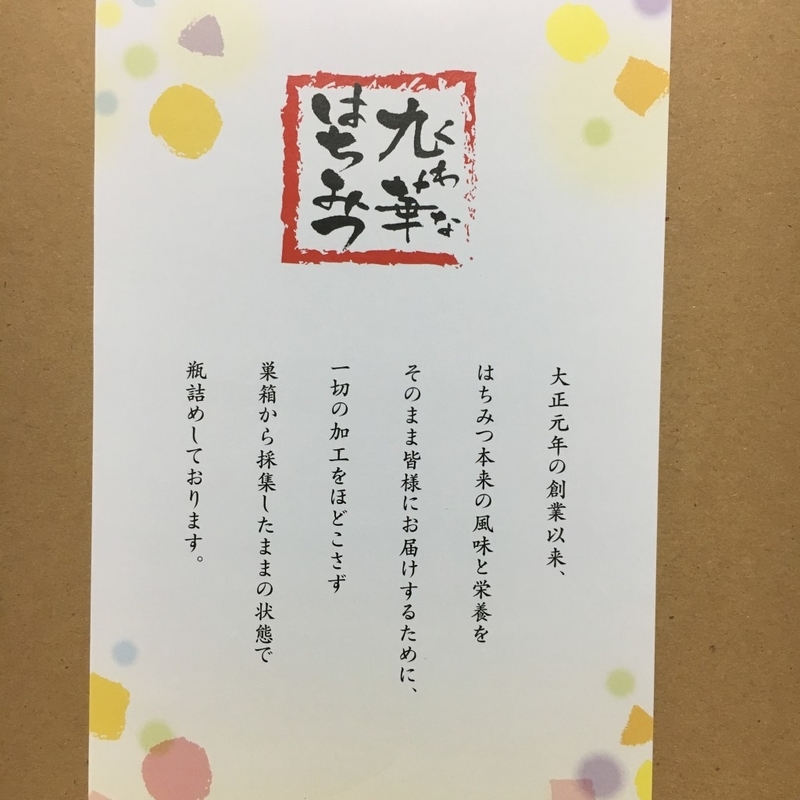 九華
くわな
はちみつ
大正元年の創業以来、
はちみつ本来の風味と栄養を
そのまま皆様にお届けするために、
一切の加工をほどこさず
巣箱から採集したままの状態で
瓶詰めしております。